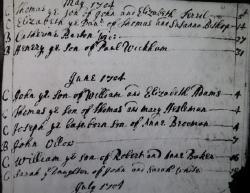 May 1704
Thomas ye son of John and Elizabeth Terril
C Elizabeth ye Dau. of Thomas and Susanna Bishop 14
B Catherine Barton Wid: 21
B Henery ye son of Paul Wickham 31
June 1704
C John ye son of William and Elizabeth Adams 4
C Thomas ye son of Thomas and Mary Hesleman 4
C Joseph ye baseborn son of Anne Brooman 4
B John 7
C William ye son of Robert and Anne Baker 16
C Sarah ye Daughter of John and Sarah White
July 1704